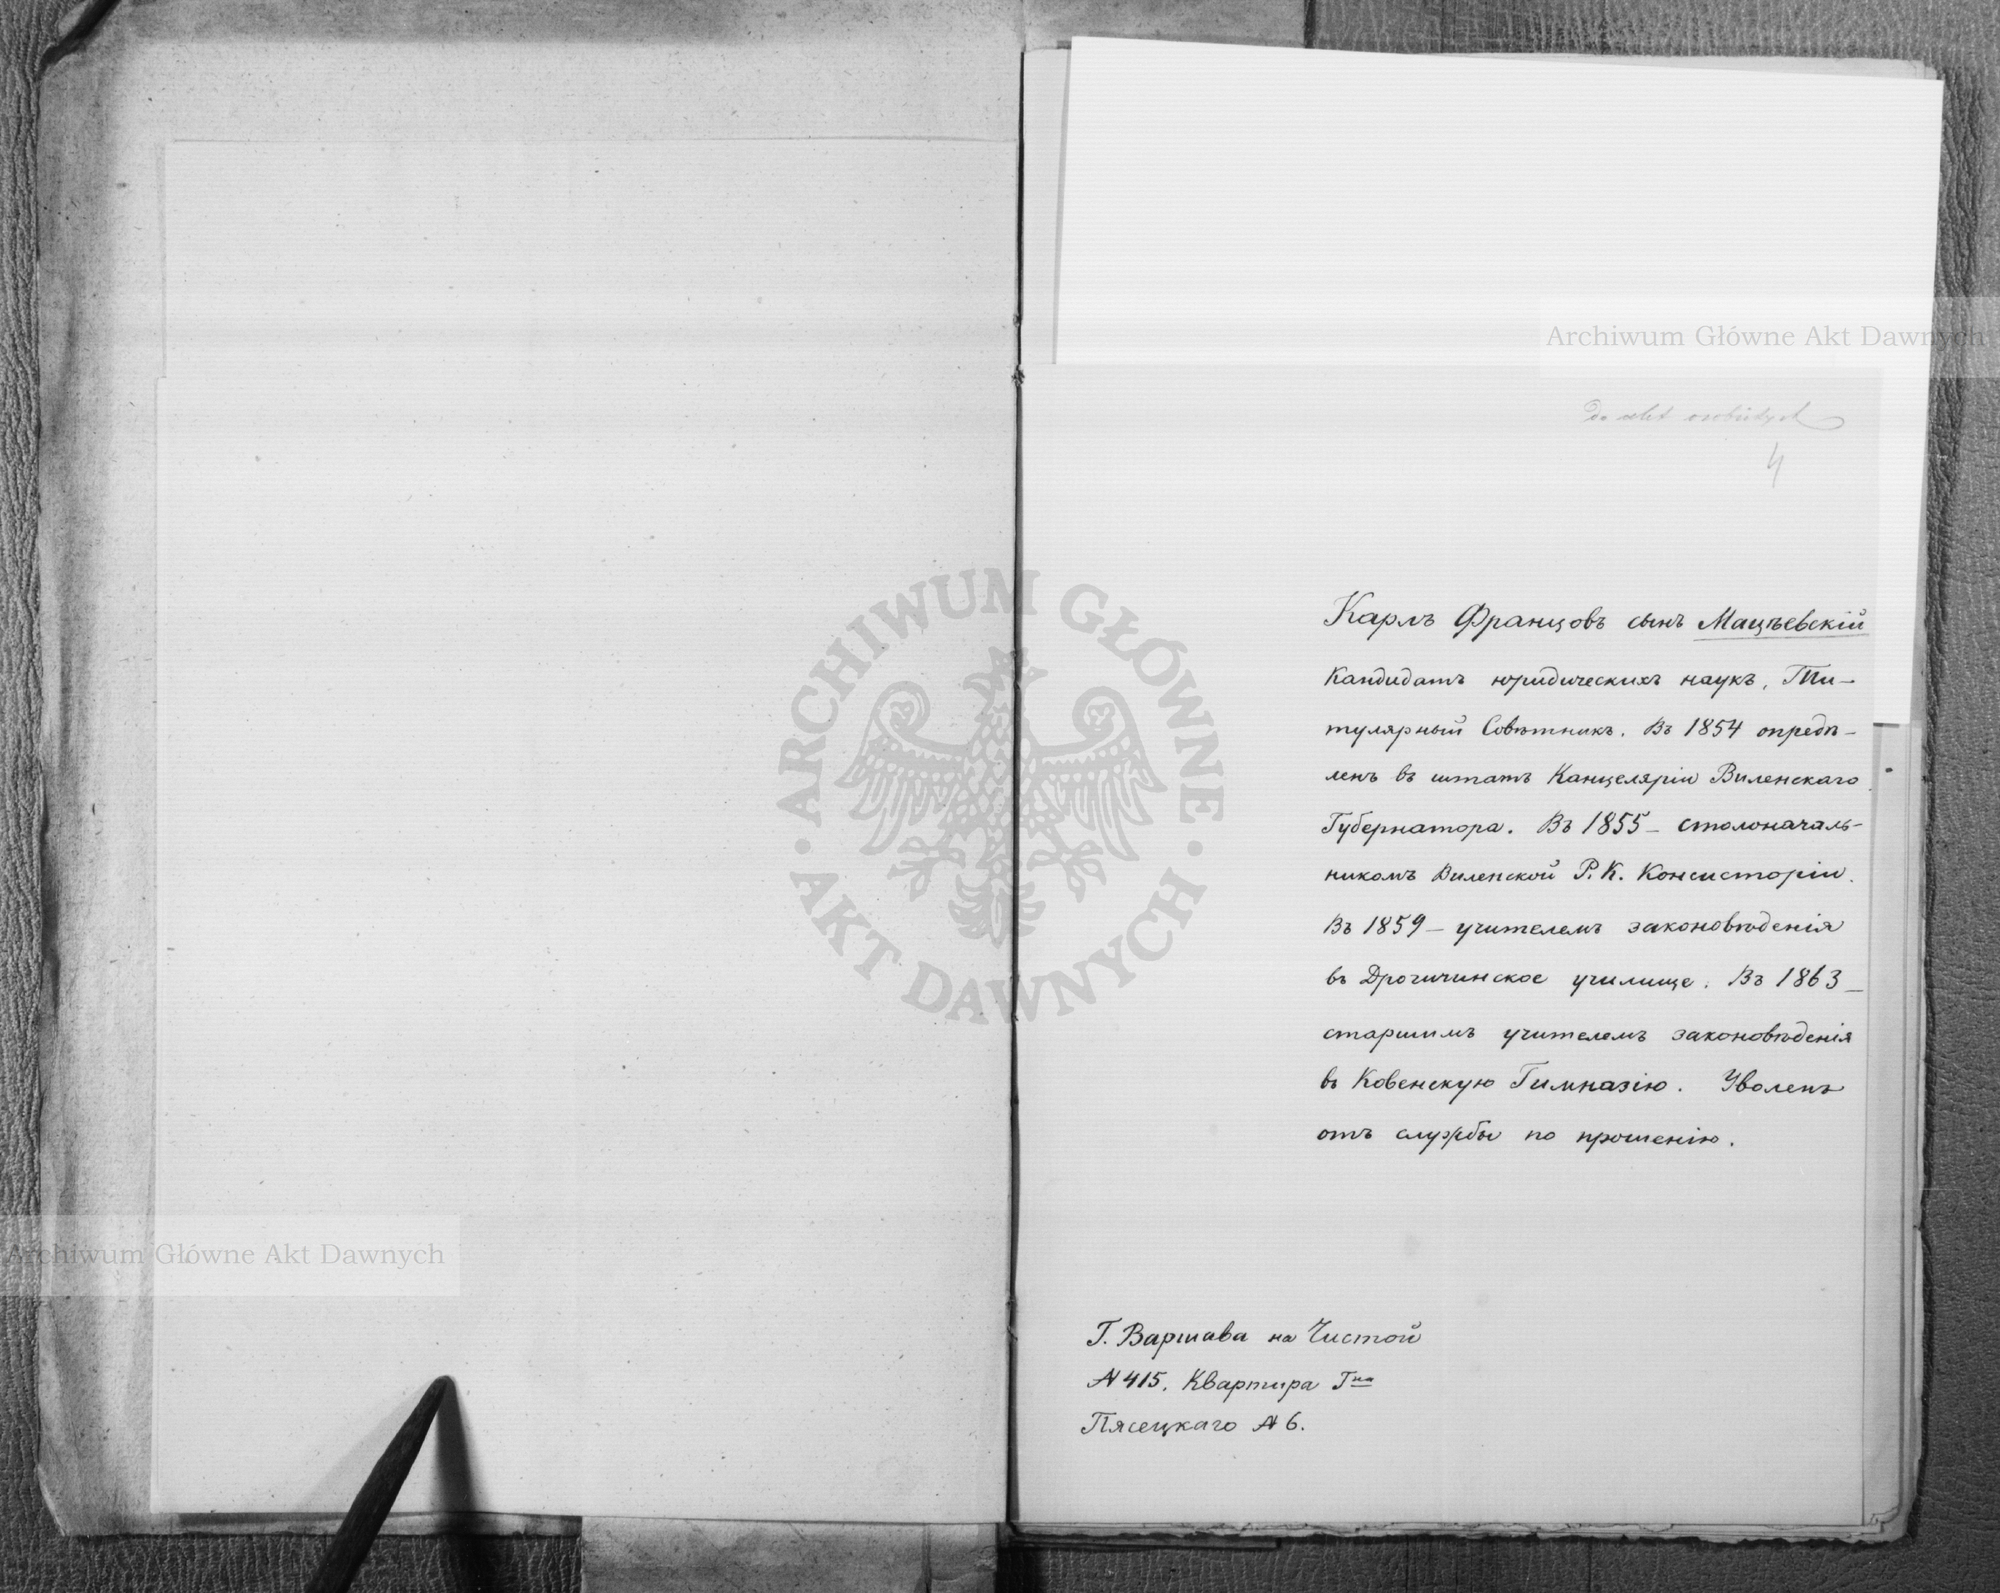 Archiwum Główne Akt Dawnych
Do akt osobistych
4
Карлъ Францовъ сынъ Мацѣевскій
Кандидатъ юридическихъ наукъ, Ти-
тулярный Совѣтникъ. Въ 1854 опредѣ-
ленъ въ штатъ Канцеляріи Виленскаго
Губернатора. Въ 1855 – столоначаль-
никомъ Виленской Р. К. Консисторіи.
Въ 1859 – учителемъ законовѣденія
въ Дрогичинское училище. Въ 1863 –
старшимъ учителемъ законовѣденія
въ Ковенскую Гимназію. Уволенъ
отъ службы по прошенію.
ARCHIWUM GŁÓWNE · AKT DAWNYCH ·
Archiwum Główne Akt Dawnych
Г. Варшава на Чистой
№ 415. Квартира Гна
Пясецкаго № 6.